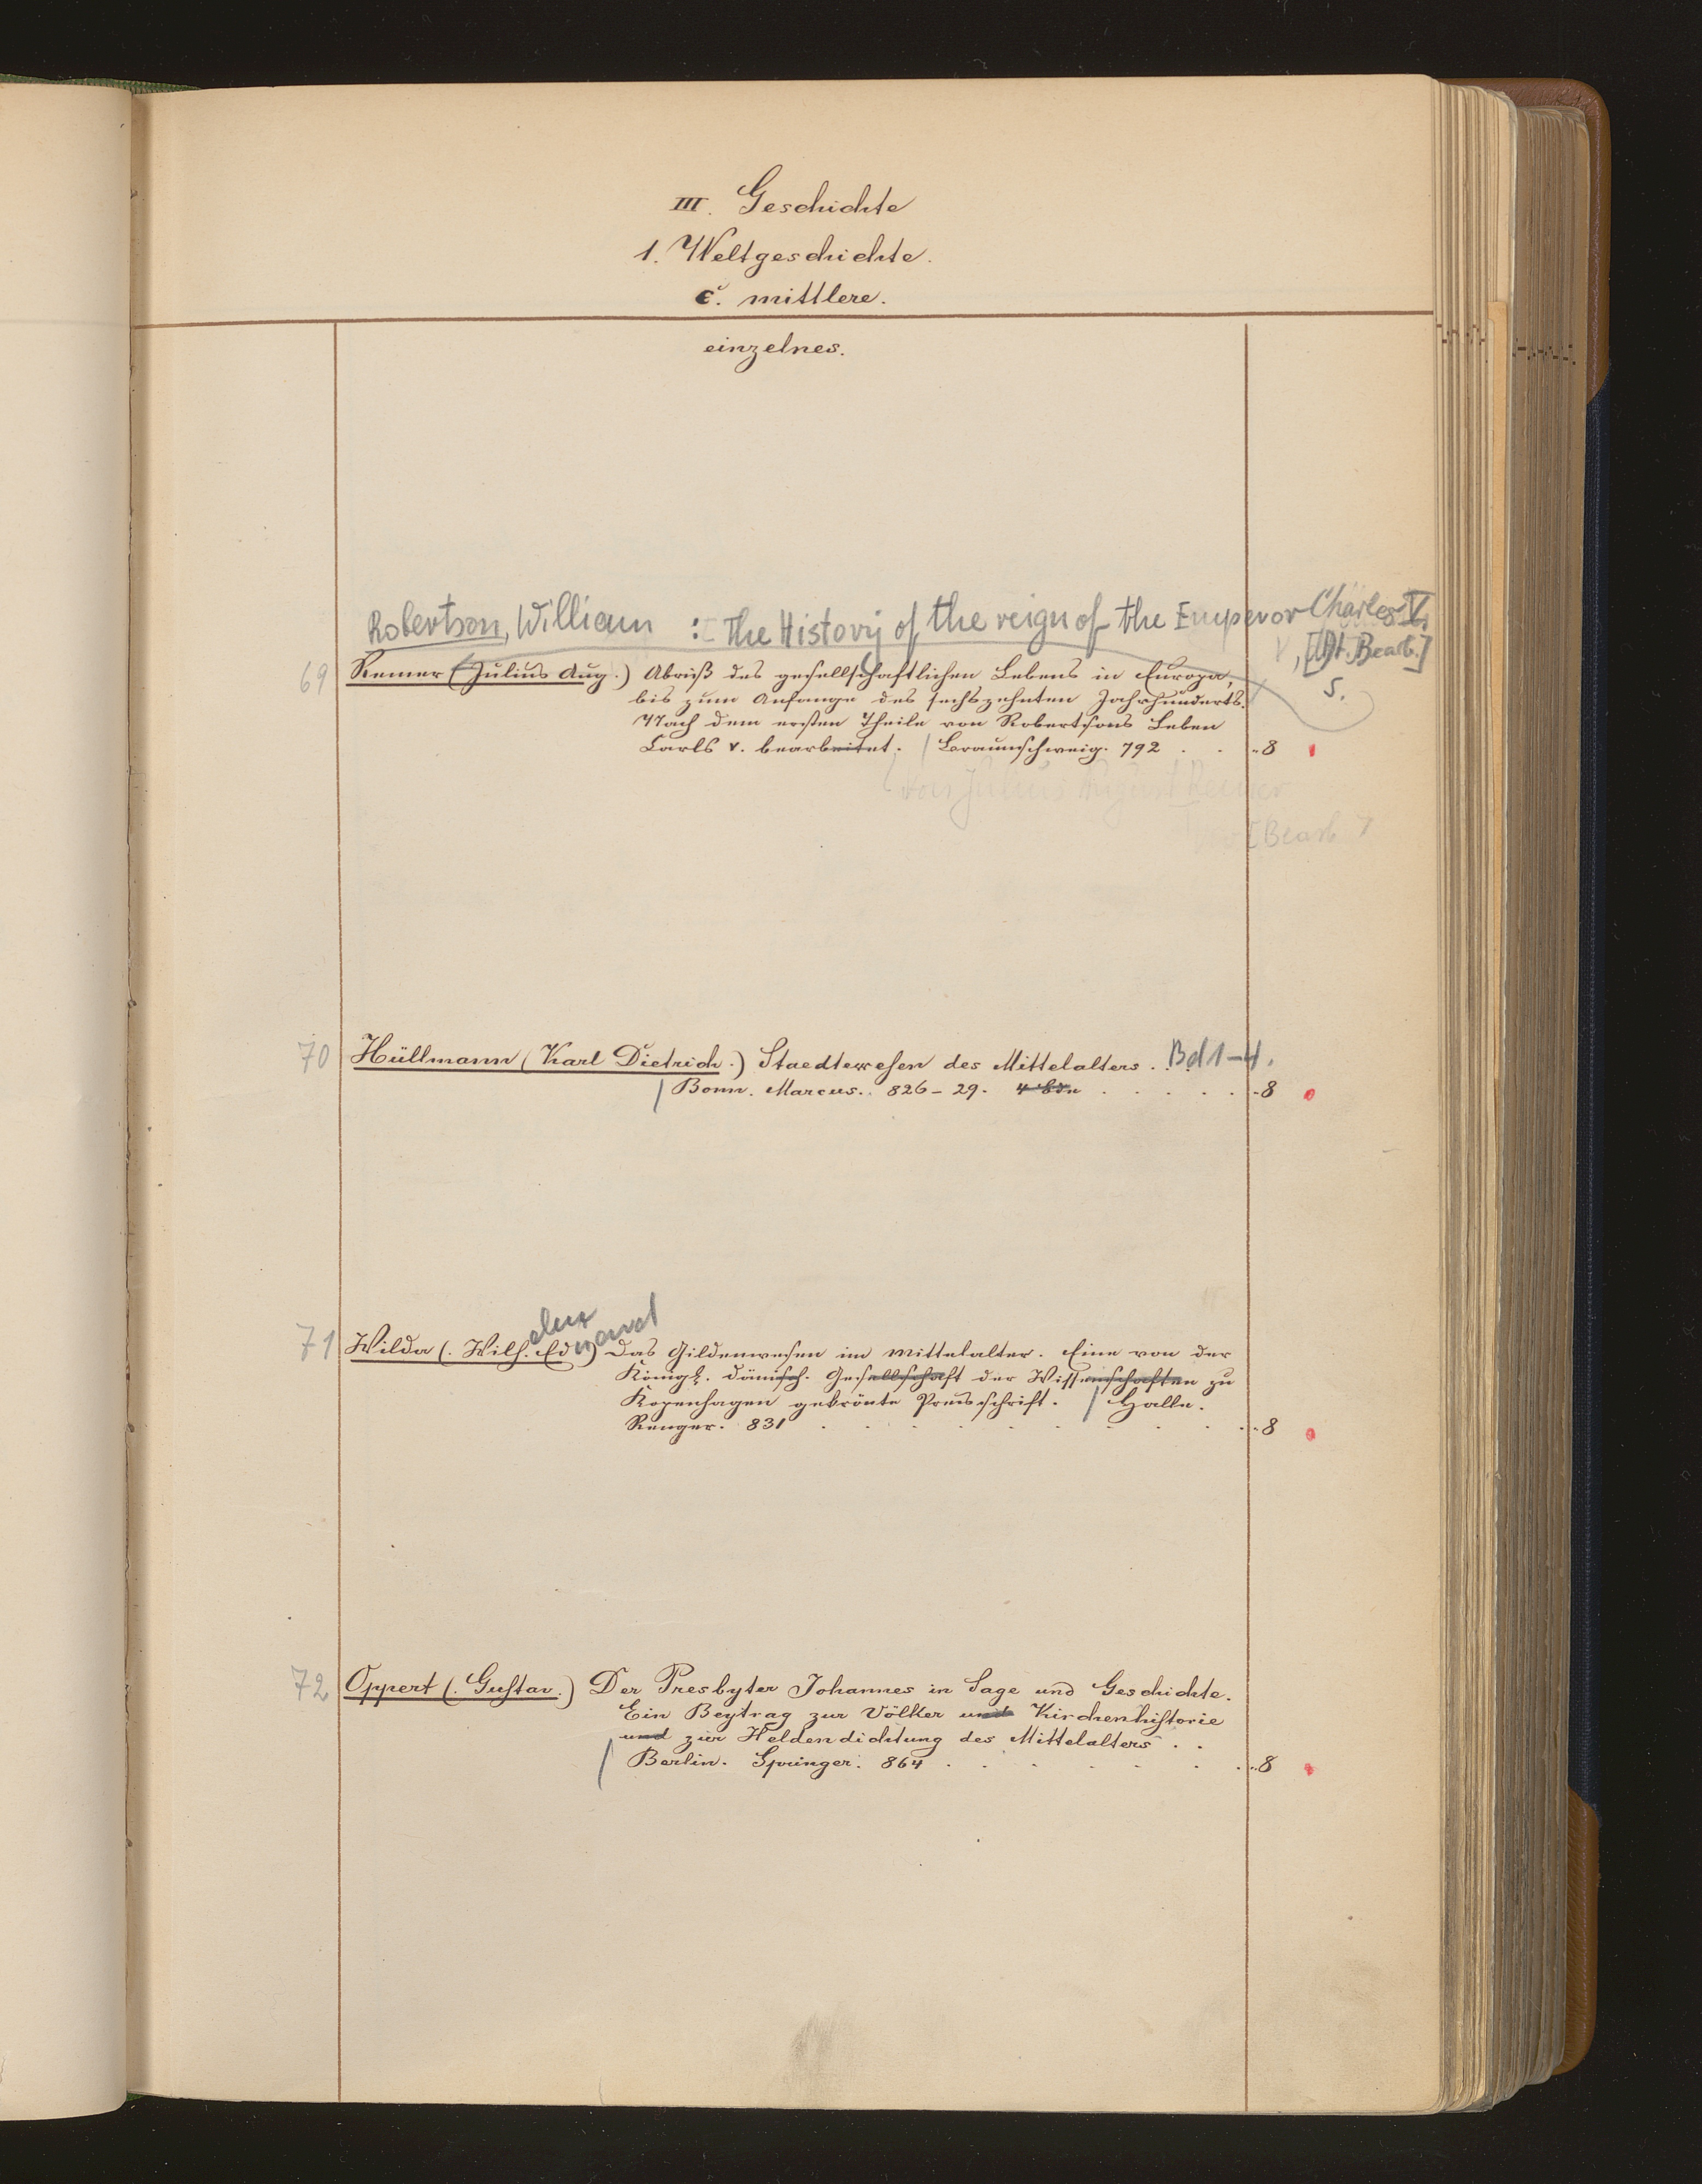 III. Geschichte
1. Weltgeschichte.
c. mittlere.
einzelnes.
Robertson, William : The History of the reign of the Emperor Charles V.
, [Dt. Bearb.]
s.
69 Remer (Julius Aug.) Abriß des gesellschaftlichen Lebens in Europa,
bis zum Anfange des sechszehnten Jahrhunderts.
Nach dem ersten Theile von Robertsons Leben
Carls V. bearbeitet. / Braunschweig. 792 . . 8
von Julius August Remer
[Bearb.]
70 Hüllmann (Karl Dietrich.) Staedtewesen des Mittelalters. Bd 1-4.
/ Bonn. Marcus. 826-29. 4 Bde . . . . . 8
71 Wilda (. Wilh. Eduard) Das Gildenwesen im Mittelalter. Eine von der
Königl. dänisch. Gesellschaft der Wissenschaften zu
Kopenhagen gekrönte Preisschrift. / Halle.
Renger. 831 . . . . . . . . . 8
72 Oppert (. Gustav.) Der Presbyter Johannes in Sage und Geschichte.
Ein Beytrag zur Völker und Kirchenhistorie
und zur Heldendichtung des Mittelalters . .
/ Berlin. Springer. 864 . . . . . . 8